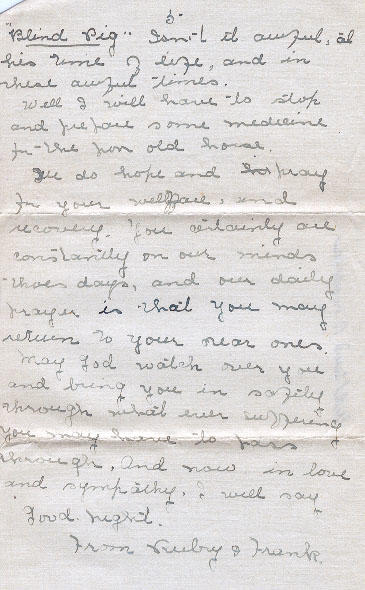 5-
"Blind Pig" Isn't it awful, at
his time of life, and in
these awful times.
Well I will have to stop
and prepare some medicine
for the poor old horse.
We do hope and pray
for your welfare, and
recovery. You certainly are
constantly on our minds
thoes days, and our daily
prayer is that you may
return to your near ones.
May God watch over you
and bring you in safity
through what ever suffering
you may have to pass
through, And now in love
and sympathy, I will say
Good night.
From Ruby & Frank.